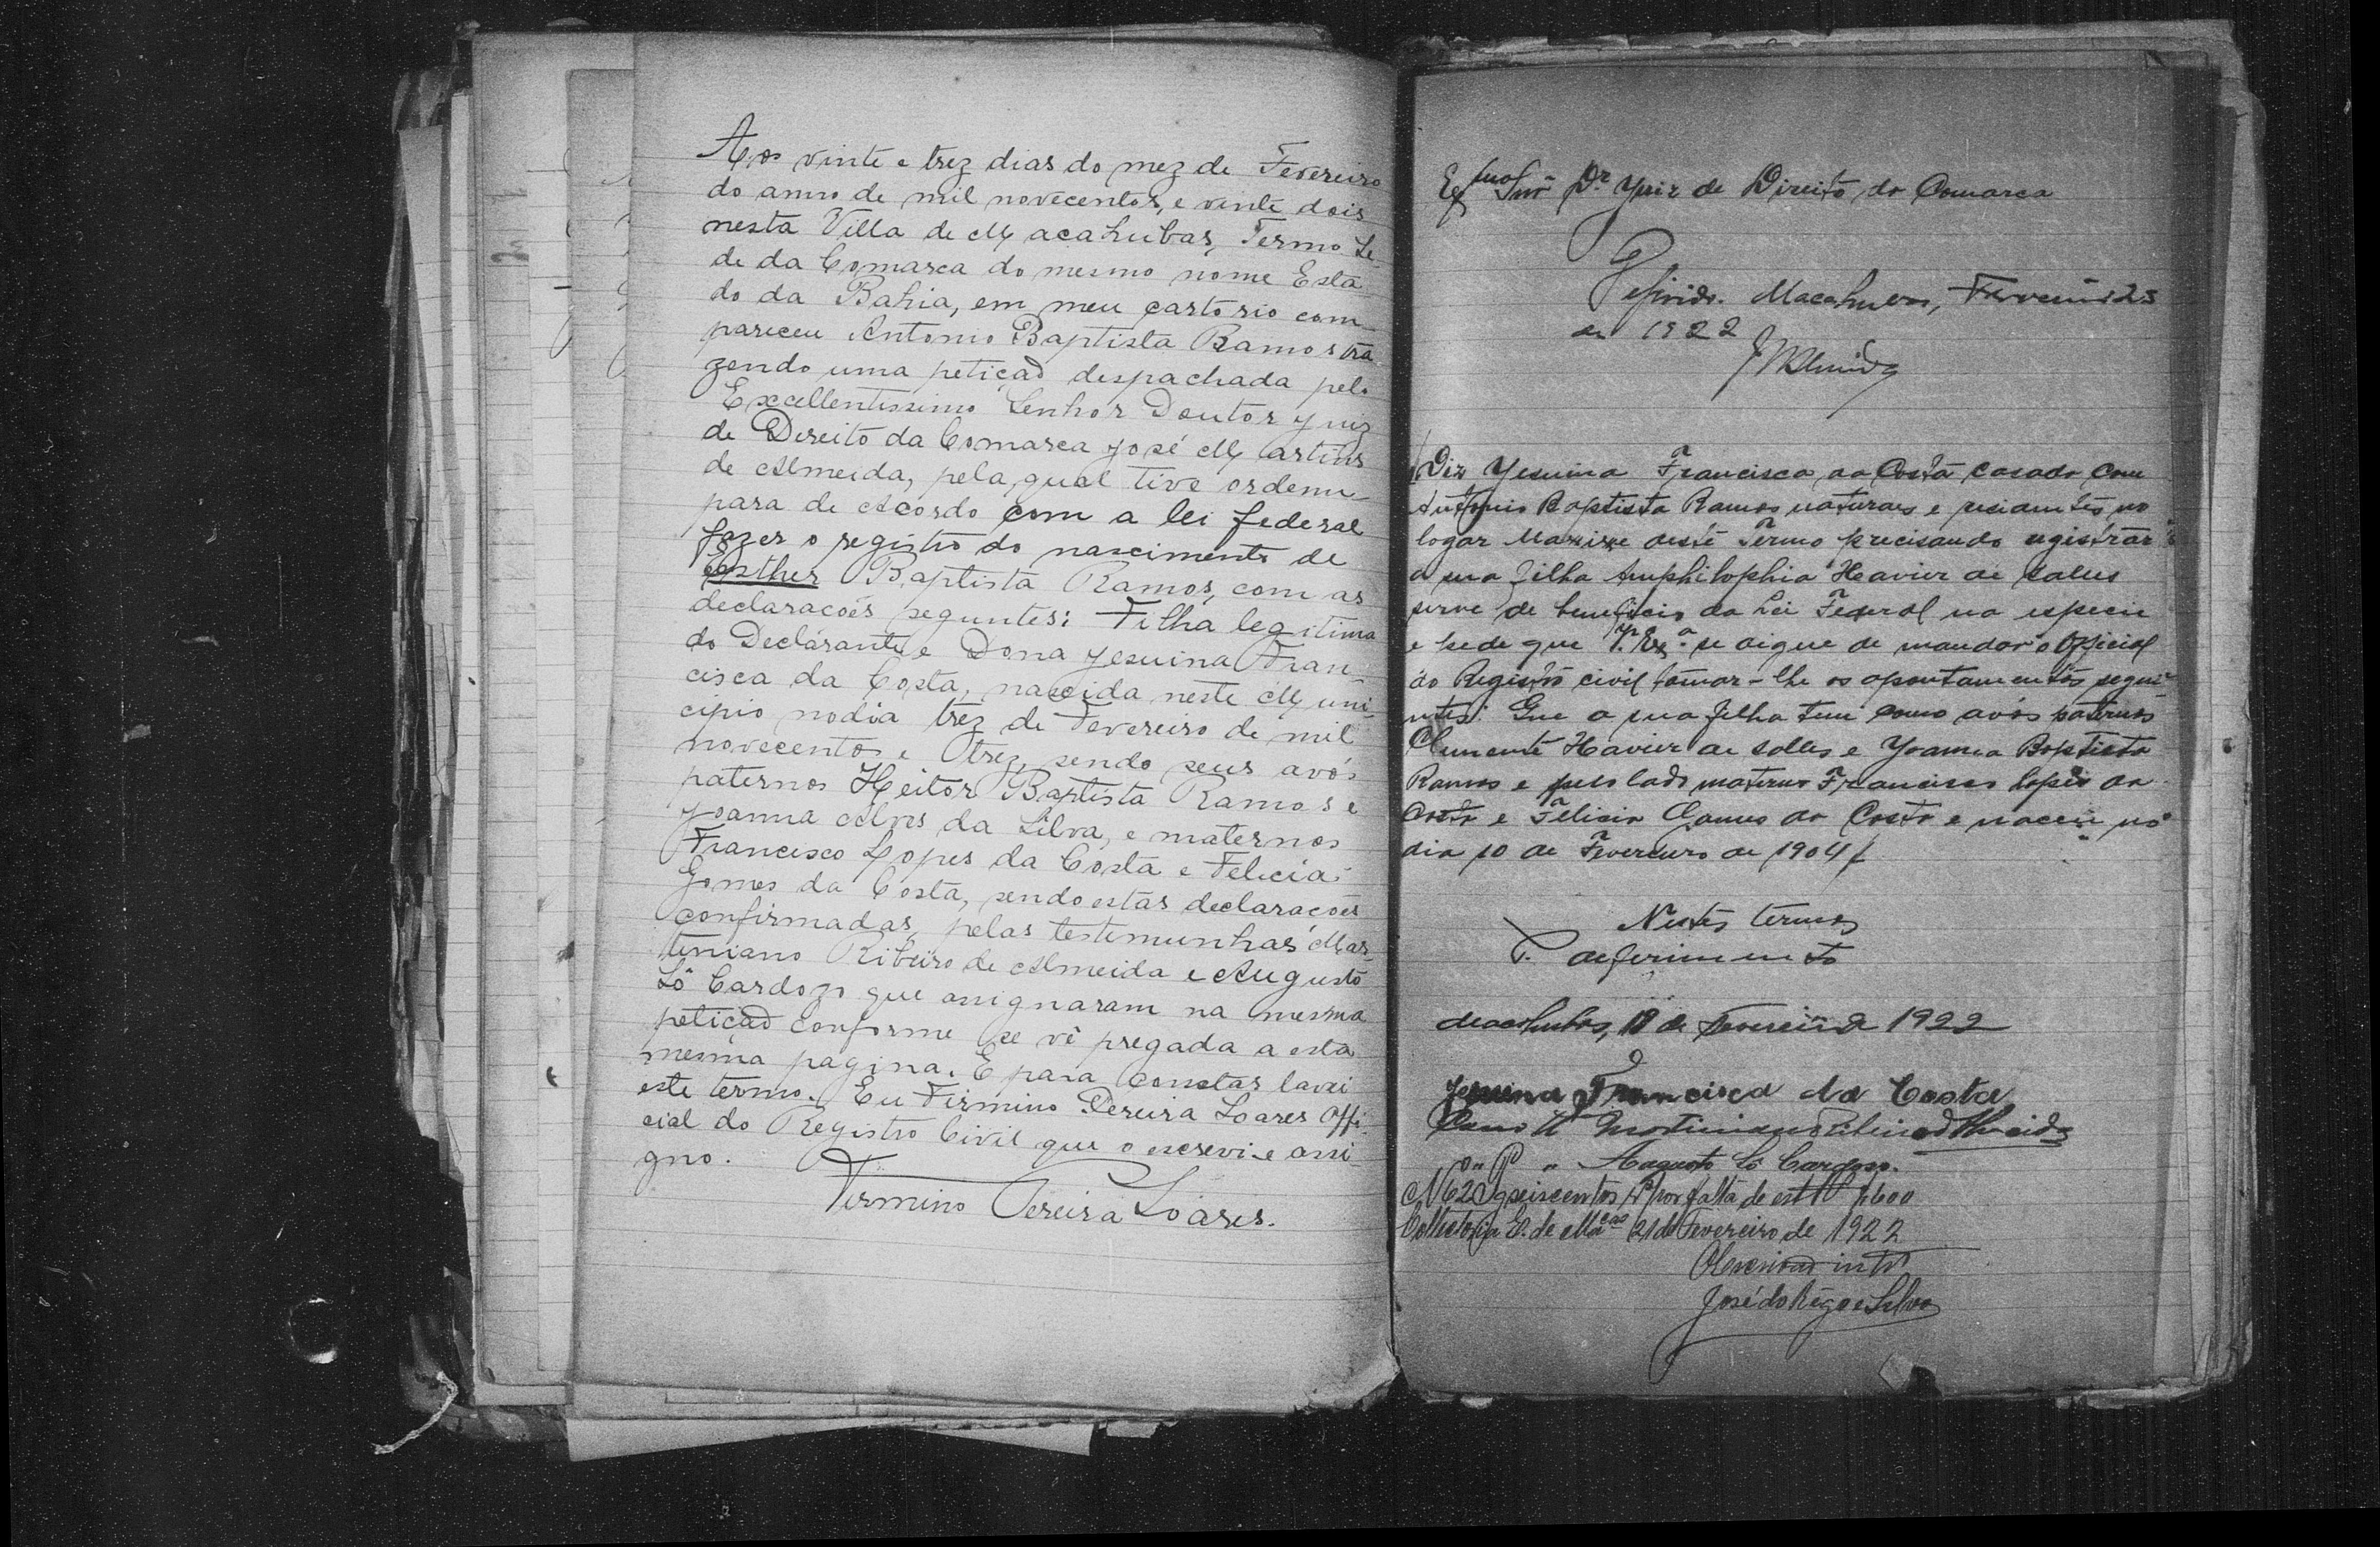 Aos vinte e trez dias do mez de Fevereiro
do anno de mil novecentos, e vinte dois
nesta Villa de Macahubas, Termo Se-
de da Comarca do mesmo nome Esta
do da Bahia, em meu cartorio com-
pareceu Antonio Baptista Ramos tra
zendo uma petição despachada pelo
Excellentissimo Senhor Doutor Juiz
de Direito da Comarca José Martins
de Almeida, pela qual tive ordem
para de Acordo com a lei federal
fazer o registro do nascimento de
Esther Baptista Ramos, com as
declaracoēs seguntes: Filha legitima
do Declarante e Dona Jesuina Fran-
cisca da Costa, nascida neste Muni-
cipio no dia trez de Fevereiro de mil
novecentos e trez, sendo seus avós
paternos Heitor Baptista Ramos e
Joanna Alves da Silva, e maternos
Francisco Lopes da Costa e Felicia
Gomes da Costa, sendo estas declaracoēs
confirmadas, pelas testemunhas Mar-
tiniano Ribeiro de Almeida e Augusto
Sô Cardozo que assignaram na mesma
petiçaõ conforme se vê pregada a esta
mesma pagina. E para constar lavrei
este termo. Eu Firmino Pereira Soares Offi-
cial do Registro Civil que o escrevi e assi
gno.
Firmino Pereira Soares.
Exmo Snr Dr Juiz de Direito da Comarca
Deferido. Macahubas, Fevereiro 23
de 1922
JMAlmeida
Diz Jesuina Francisca da Costa casada com
Antonio Baptista Ramos naturaes e residentes no
logar deste Termo precisando registrar
a sua filha Amphilophia Xavier de Salles
serve de beneficio da Lei Federal na especie
e pede que V. Exª se digne de mandar o Official
do Registro civil tomar-lhe os apontamentos segui-
ntes: Que a sua filha tem como avós paternos
Clemente Xavier de Solles e Joanna Baptista
Ramos e pelo lado materno Francisco Lopes da
Costa e Felicia Gomes da Costa e naceu no
dia 10 de Fevereiro de 1904
Nestes termos
P. deferimento
Macahubas, 18 de Fevereiro de 1922
Jesuina Francisca da Costa
Como Tª Martiniano Ribeiro d'Almeida
" " " Augusto Sô Cardozo.
N 62 Pg seiscentos rs por falta de est $600
Collectoria E. de Macas 21 de Fevereiro de 1922
José do Rego e Silva